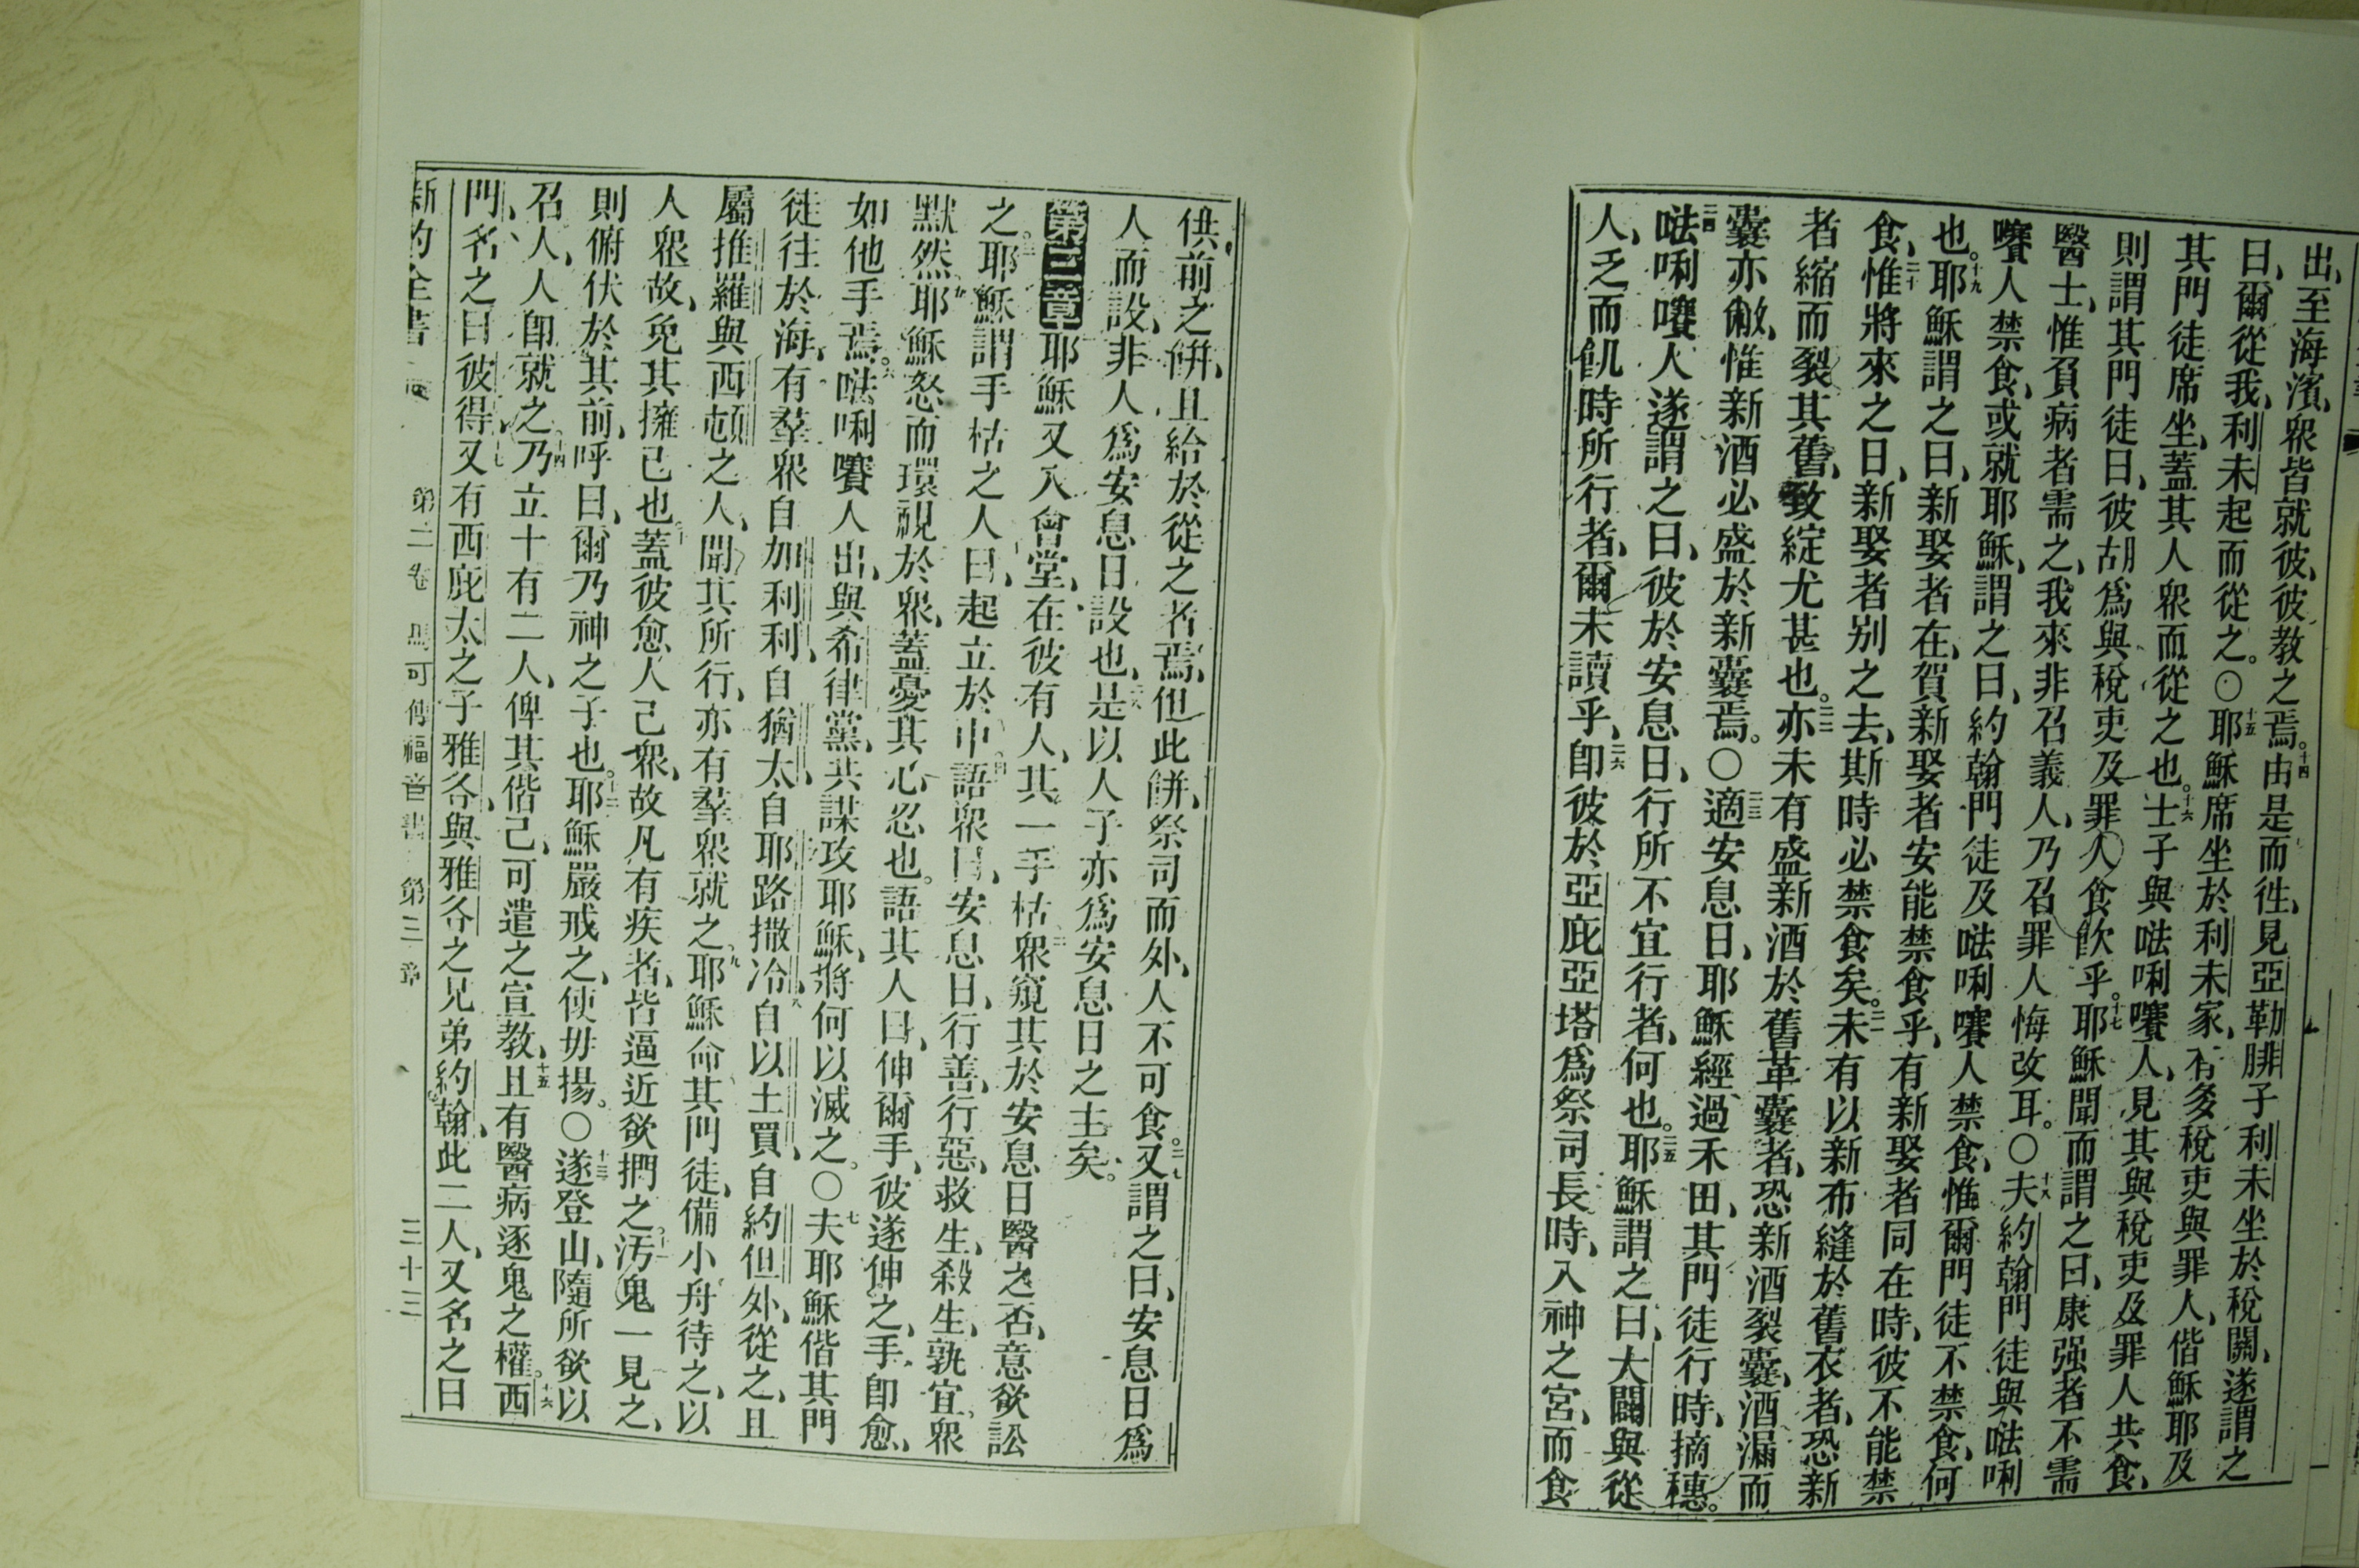 出、至海濱、衆皆就彼、彼教之焉。十四由是而徃、見亞勒腓子利未坐於稅關、遂謂之
曰、爾從我、利未起而從之。〇十五耶穌席坐於利未家、有多稅吏與罪人、偕穌耶及
其門徒席坐、蓋其人衆而從之也。十六士子與𠵽唎㘔人、見其與稅吏及罪人共食、
則謂其門徒曰、彼胡爲與稅吏及罪人食飲乎。十七耶穌聞而謂之曰、康强者不需
醫士、惟負病者需之、我來非召義人、乃召罪人悔改耳。〇十八夫約翰門徒與𠵽唎
㘔人禁食、或就耶穌、謂之曰、約翰門徒及𠵽唎㘔人禁食、惟爾門徒不禁食、何
也。十九耶穌謂之曰、新娶者在、賀新娶者安能禁食乎、有新娶者同在時、彼不能禁
食、二十惟將來之日、新娶者别之去、斯時必禁食矣。二一未有以新布縫於舊衣者、恐新
者縮而裂其舊、致綻尤甚也。二二亦未有盛新酒於舊革囊者、恐新酒裂囊、酒漏而
囊亦敝、惟新酒必盛於新囊焉。〇二三適安息日、耶穌經過禾田、其門徒行時、摘穗。
二四𠵽唎㘔人遂謂之曰、彼於安息日、行所不宜行者、何也。二五耶穌謂之曰、大闢與從
人、乏而飢時所行者、爾未讀乎、二六卽彼於亞庇亞塔爲祭司長時、入神之宮、而食
供前之餅、且給於從之者焉、但此餅、祭司而外、人不可食。二七又謂之曰、安息日爲
人而設、非人爲安息日設也、二八是以人子亦爲安息日之主矣。
第三章耶穌又入會堂、在彼有人、其一手枯、二衆窺其於安息日醫之否、意欲訟
之。三耶穌謂手枯之人曰、起立於中。四語衆曰、安息日、行善、行惡、救生、殺生、孰宜。衆
默然、五耶穌怒而環視於衆、蓋憂其心忍也。語其人曰、伸爾手、彼遂伸之、手卽愈、
如他手焉。六𠵽唎㘔人出、與希律黨、共謀攻耶穌、將何以滅之。〇七夫耶穌偕其門
徒往於海、有羣衆自加利利、自猶太、自耶路撒冷、八自以土買、自約但外、從之、且
屬推羅與西頓之人、聞其所行、亦有羣衆就之。九耶穌命其門徒、備小舟待之、以
人衆故、免其擁己也。十蓋彼愈人已衆、故凡有疾者、皆逼近欲捫之。十一汚鬼一見之、
則俯伏於其前、呼曰、爾乃神之子也。十二耶穌嚴戒之、使毋揚。〇十三遂登山、隨所欲以
召人、人卽就之。十四乃立十有二人、俾其偕己、可遣之宣教、十五且有醫病逐鬼之權。十六西
門、名之曰彼得、十七又有西庇太之子雅各、與雅各之兄弟約翰、此二人、又名之曰
新約全書 第二卷 馬可傳福音書 第三章 三十三